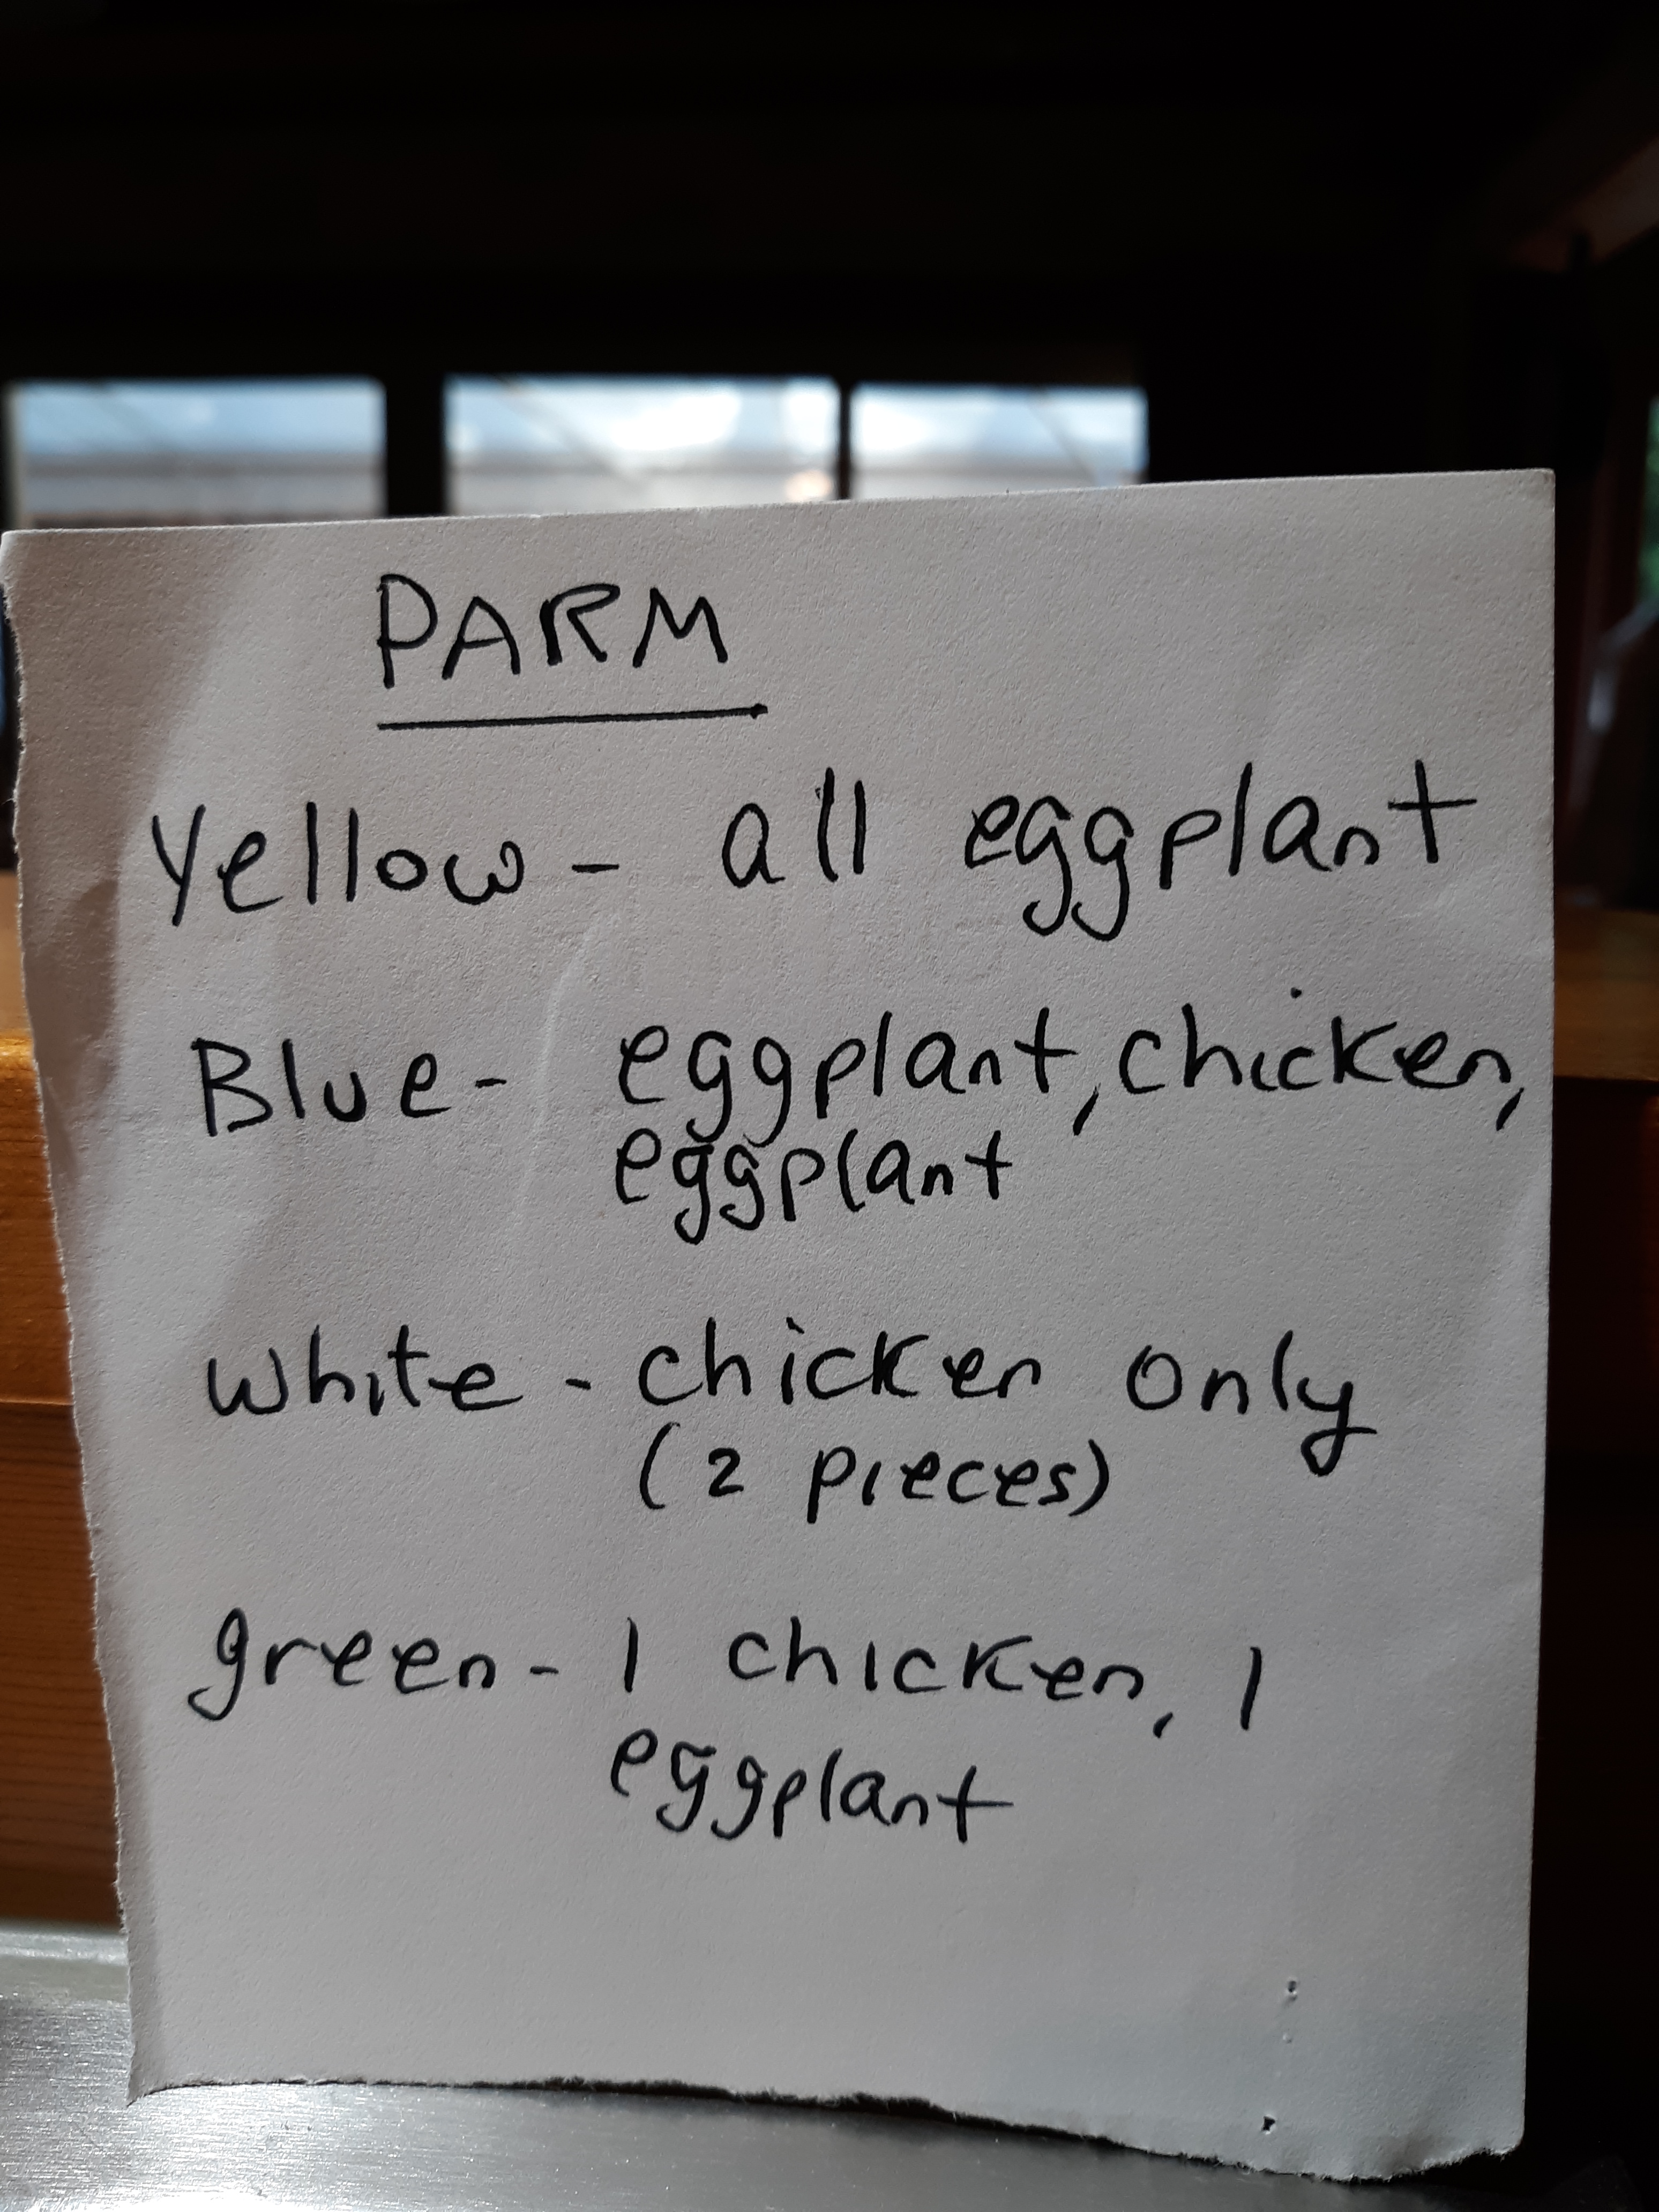 PARM
Yellow - all eggplant
Blue - eggplant, chicken,
eggplant
white - chicken only
(2 pieces)
green - 1 chicken, 1
eggplant